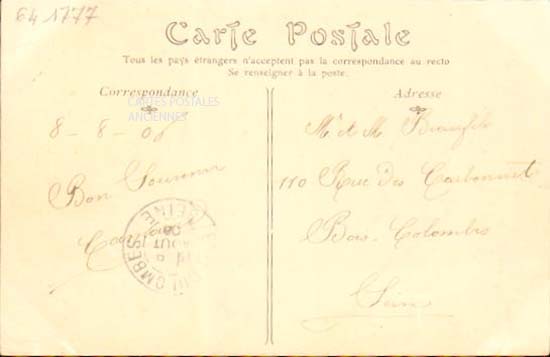 64 1777
Carte Postale
Tous les pays étrangers n'acceptent pas la correspondance au recto
Se renseigner à la poste.
Correspondance
CARTES POSTALES
ANCIENNES
8 - 8 - 08
Bon Souvenir
Adresse
Mr et M
110 Rue Des
Bois-Colombes
Seine
SEINE
AOUT
COLOMBES